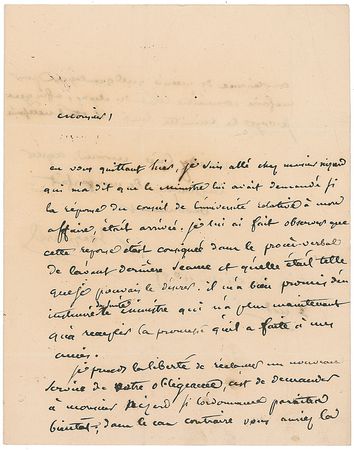 Monsieur!
en vous quittant hier, je suis allé chez monsieur
qui m'a dit que le ministre lui avait demandé si
la réponse du conseil de l'université relative à mon
affaire, était arrivée. je lui ai fait observer que
cette réponse était consignée dans le procès-verbal
de l'avant dernière séance et qu'elle était telle
que je pouvais le désirer. il m'a bien promis d'en
instruire le ministre qui n'a plus maintenant
qu'à réaliser la promesse qu'il a faite à mes
je prends la liberté de réclamer un nouveau
service de votre obligeance, c'est de demander
à monsieur si l'ordonnance paraîtra
bientôt; dans le cas contraire vous auriez la